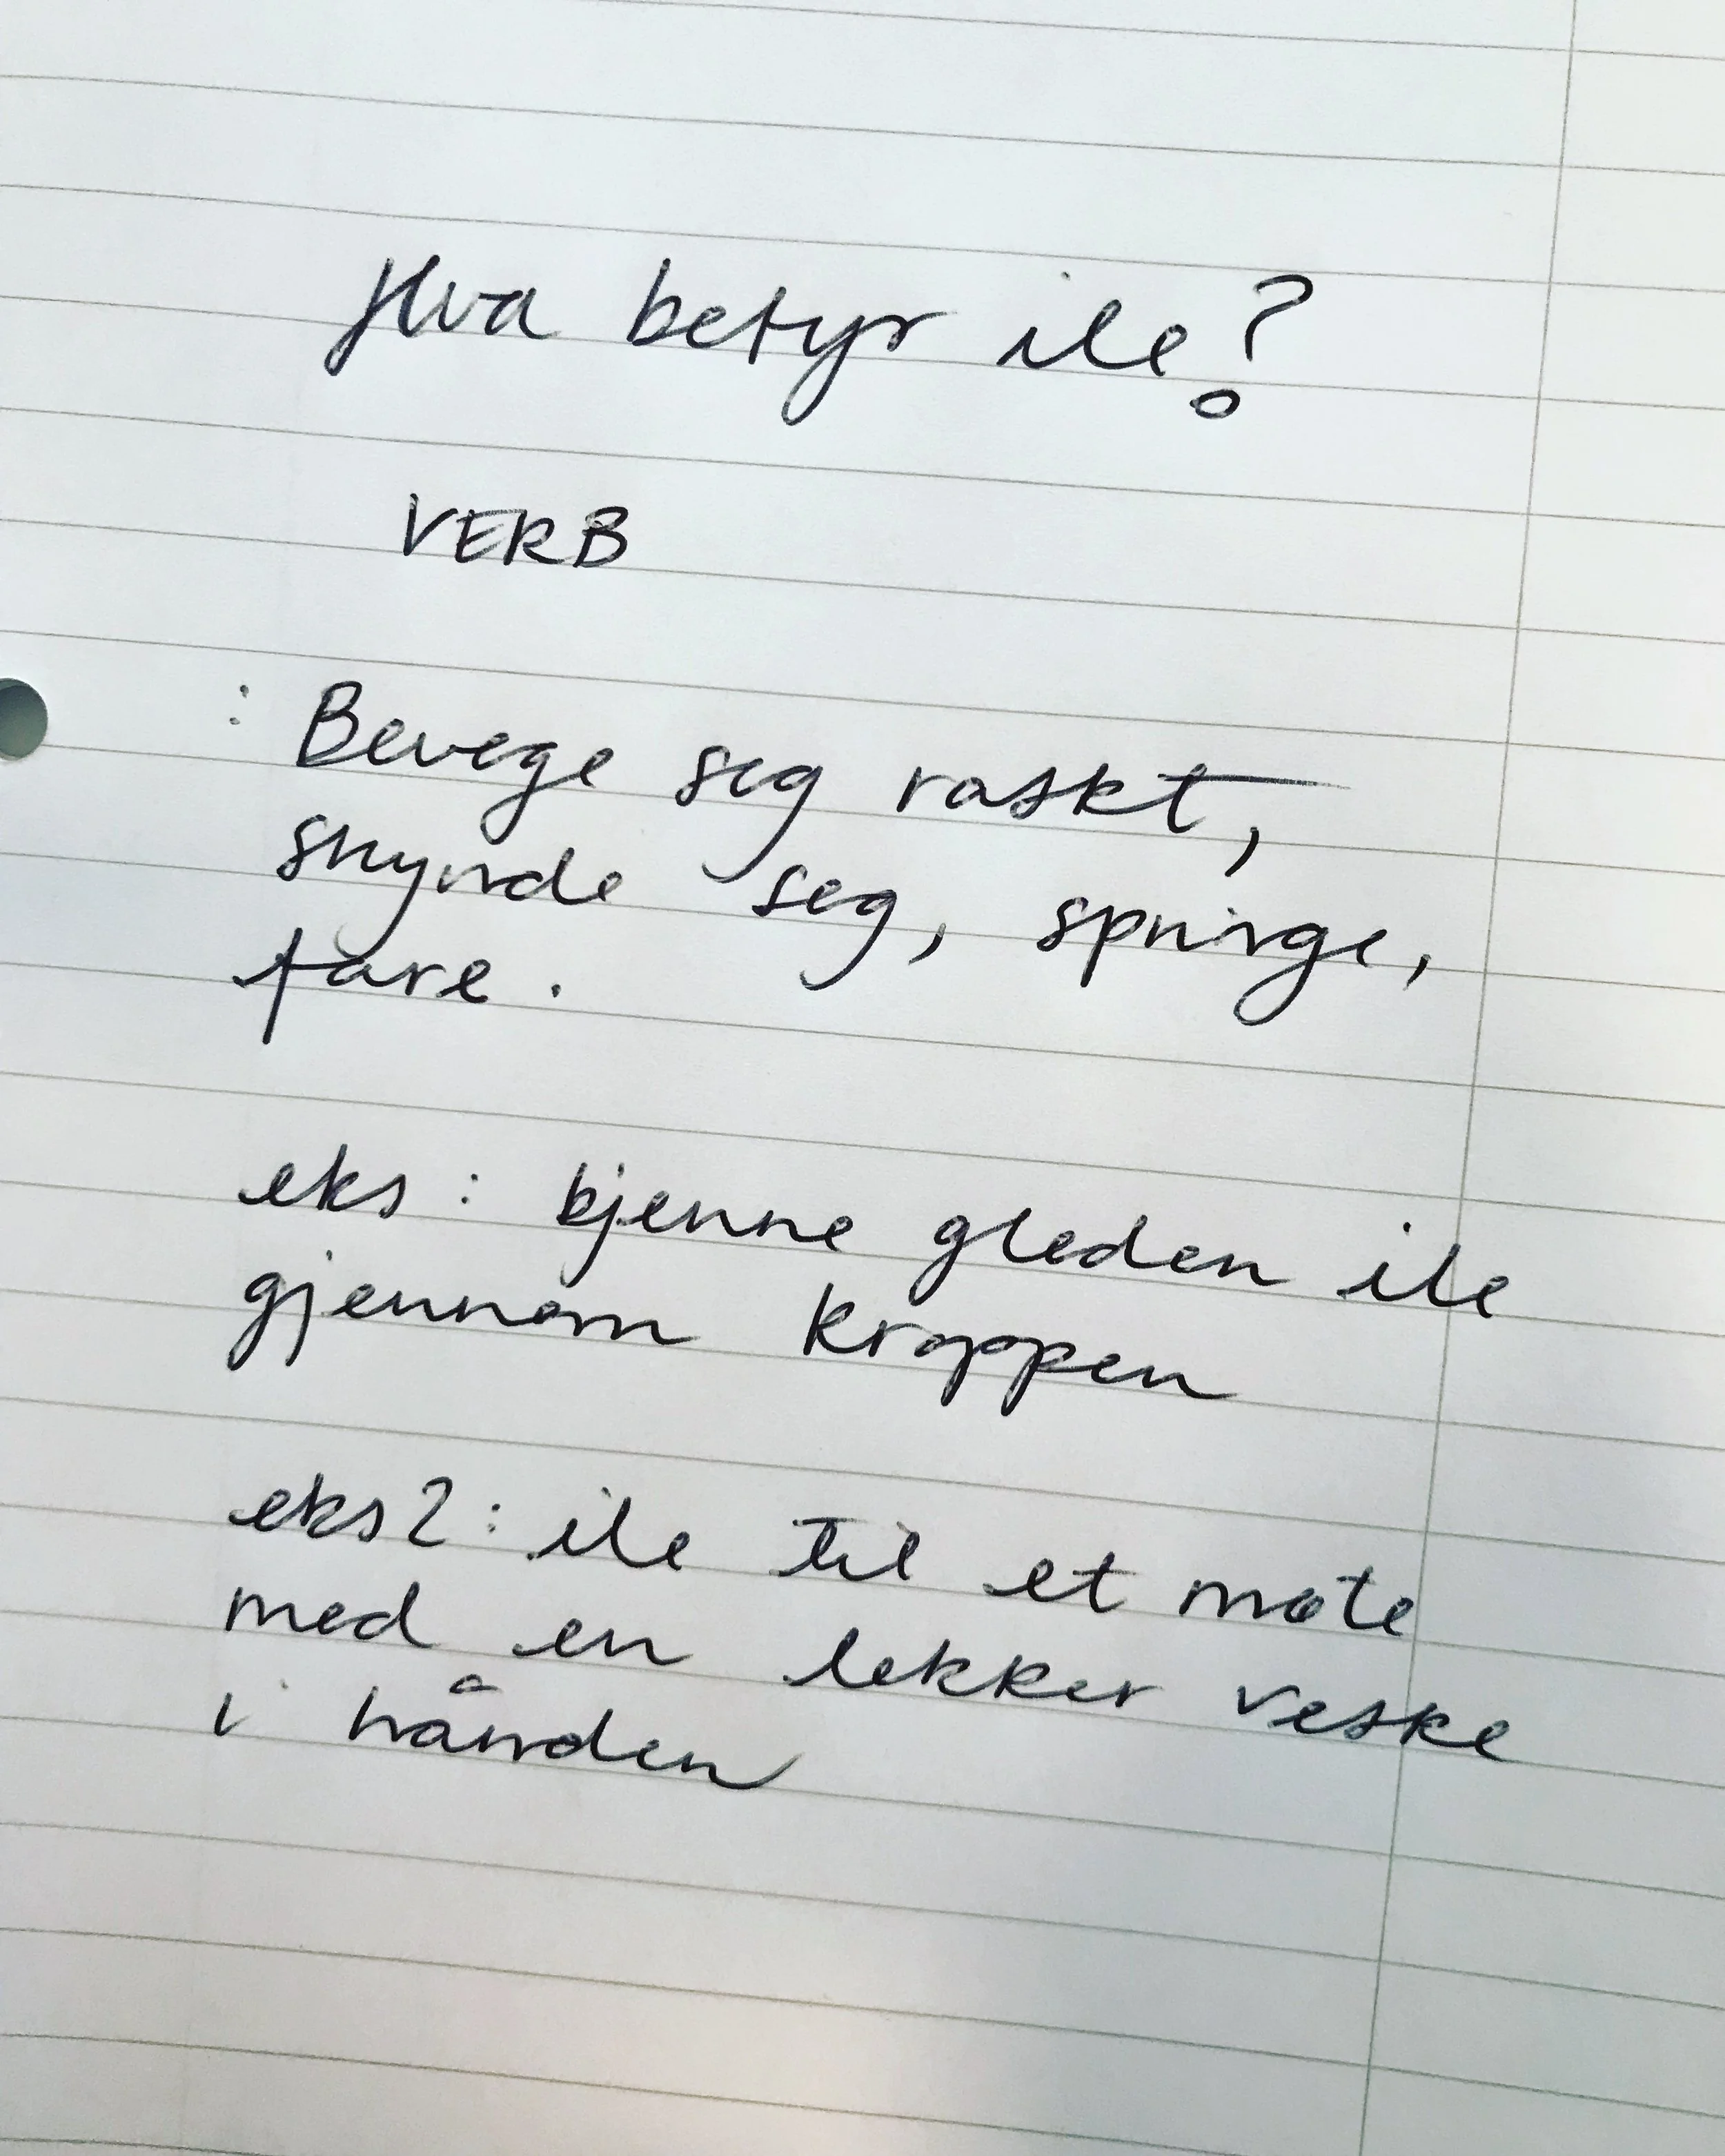 Hva betyr ile?
VERB
: Bevege seg raskt,
skynde seg, springe,
fare.
eks : kjenne gleden ile
gjennom kroppen
eks2: ile til et møte
med en lekker veske
i hånden